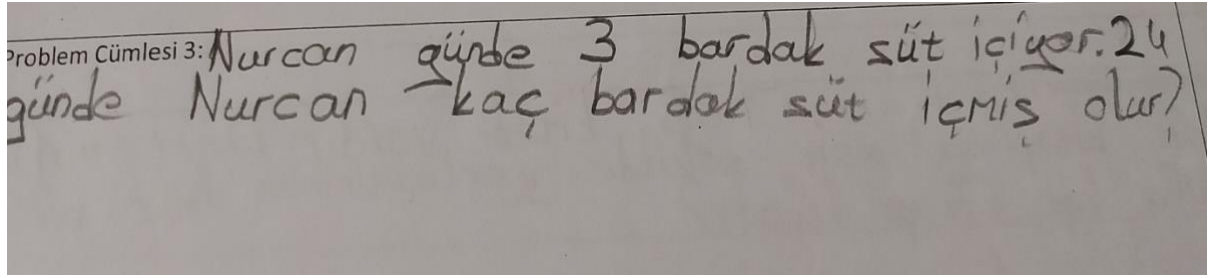 Problem Cümlesi 3: Nurcan günde 3 bardak süt içiyor. 24
günde Nurcan kaç bardak süt içmiş olur?